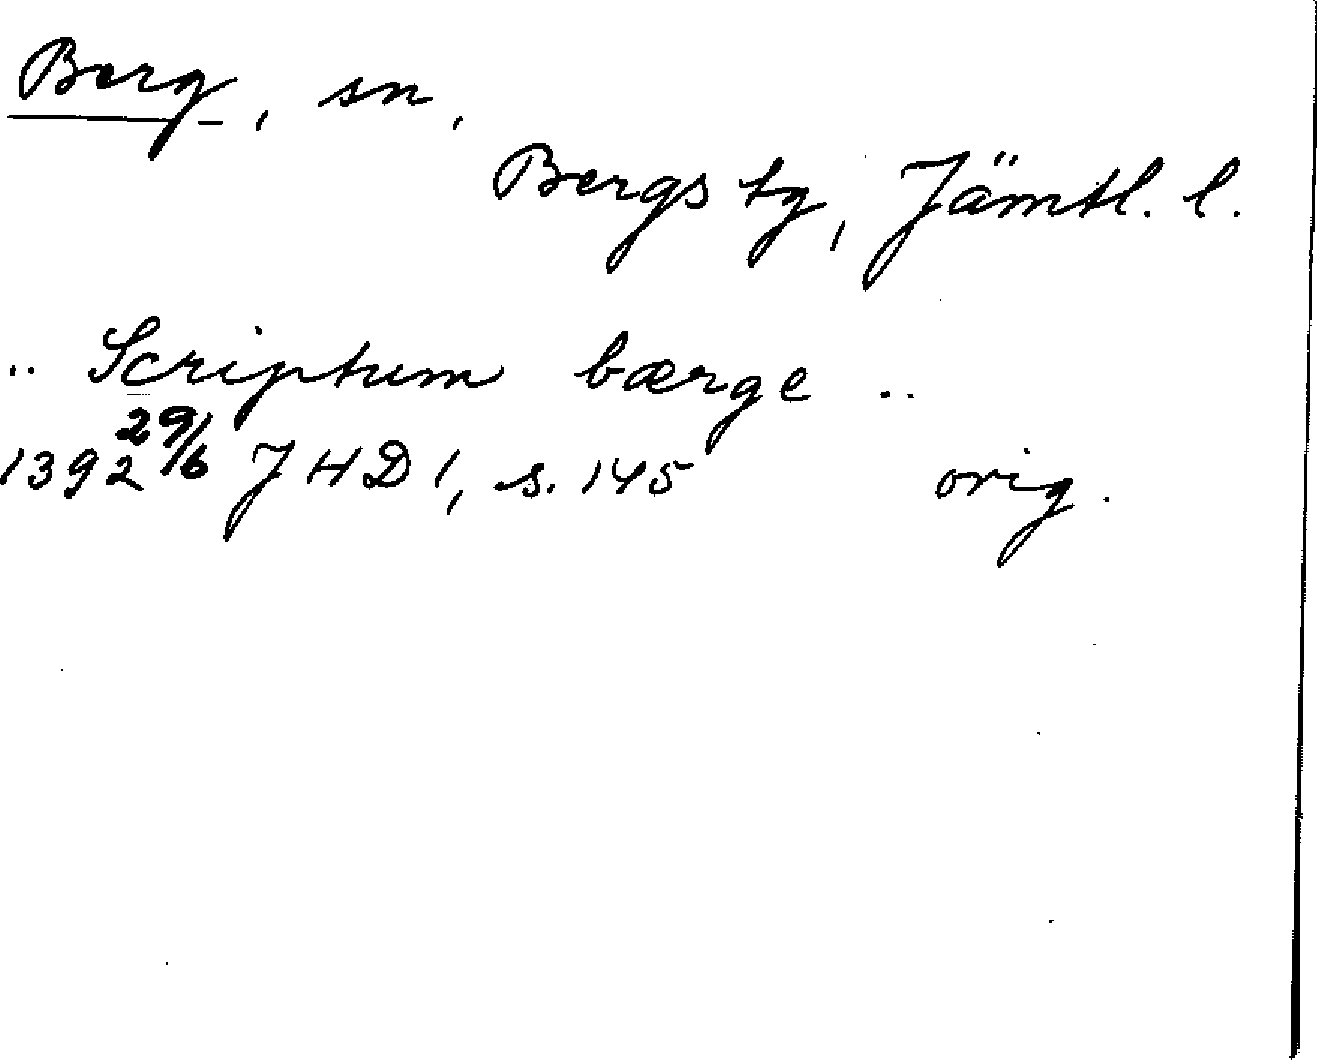 Berg, sn,
Bergs tg, Jämtl. l.
.. Scriptum bærge ..
1392 29/6 JHD 1, s. 145 orig.